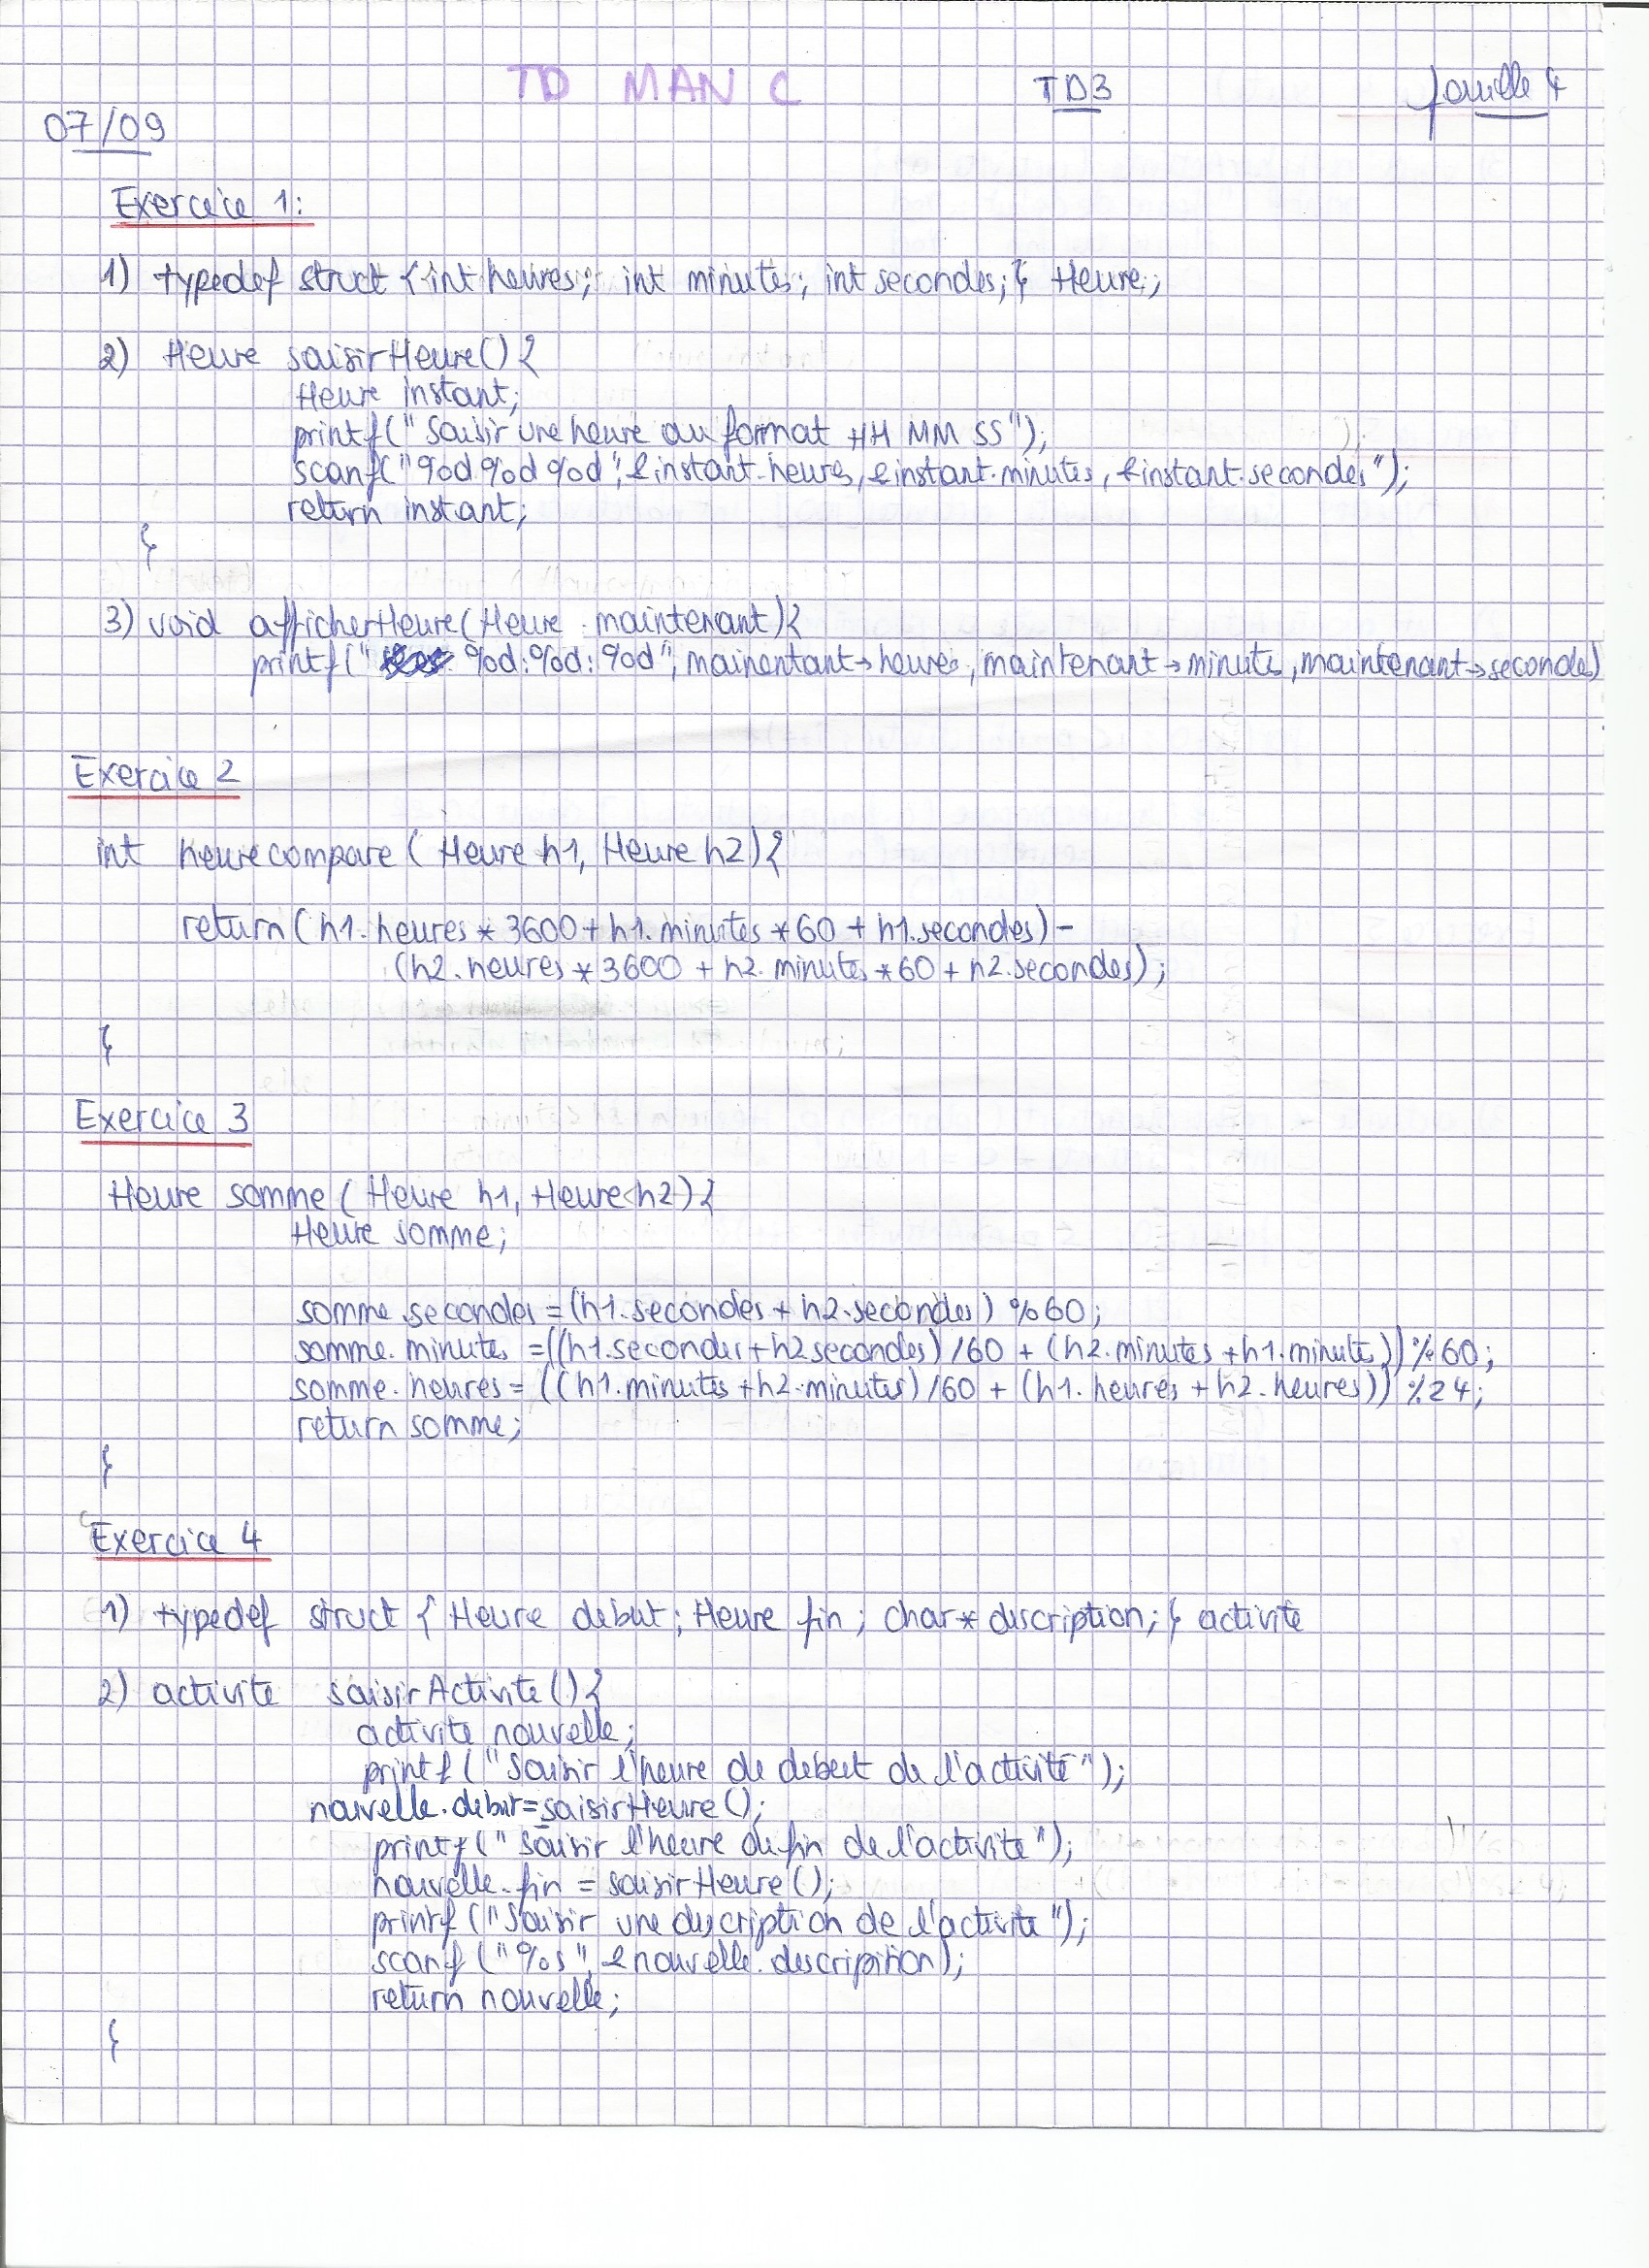 TD MAN C TD3 famille 4
07/09
Exercice 1:
1) typedef struct { int heures; int minutes; int secondes; } Heure;
2) Heure saisirHeure() {
Heure instant;
printf(" Saisir une heure au format HH MM SS");
scanf("%d %d %d", &instant.heures, &instant.minutes, &instant.secondes");
return instant;
}
3) void afficherHeure(Heure maintenant) {
printf(" %d:%d:%d", mainentant→heures, maintenant→minutes, maintenant→secondes)
Exercice 2
int heurecompare ( Heure h1, Heure h2) {
return (h1.heures * 3600 + h1.minutes * 60 + h1.secondes) -
(h2.heures * 3600 + h2.minutes * 60 + h2.secondes);
}
Exercice 3
Heure somme ( Heure h1, Heure h2) {
Heure somme;
somme.secondes = (h1.secondes + h2.secondes) % 60;
somme.minutes = ((h1.secondes + h2 secondes) /60 + (h2.minutes + h1.minutes)) % 60;
somme.heures = ((h1.minutes + h2.minutes) /60 + (h1.heures + h2.heures)) % 24;
return somme;
}
Exercice 4
1) typedef struct { Heure debut; Heure fin; char* description; } activite
2) activite saisirActivite () {
activite nouvelle;
printf ("Saisir l'heure de debut de l'activité");
nouvelle.debut = saisirHeure ();
printf (" Saisir l'heure de fin de l'activite");
nouvelle.fin = saisirHeure ();
printf ("Saisir une description de l'activite");
scanf ("%s", &nouvelle.description);
return nouvelle;
}